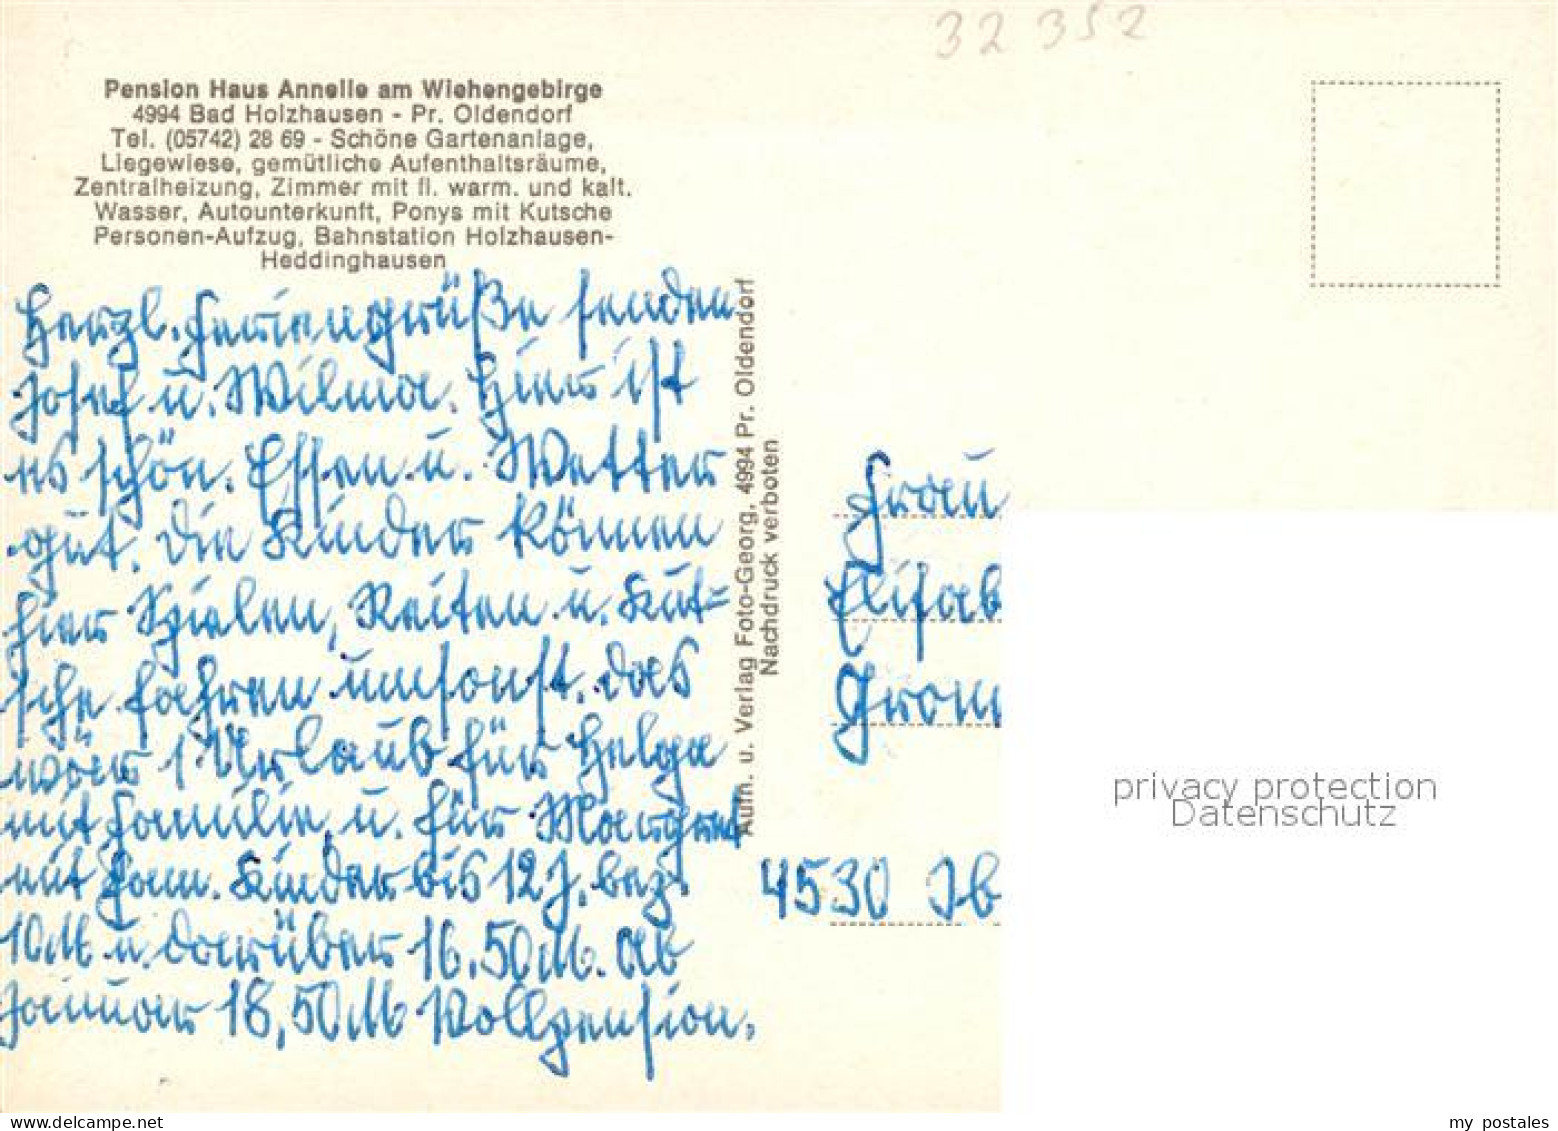 32352
Pension Haus Annelie am Wiehengebirge
4994 Bad Holzhausen - Pr. Oldendorf
Tel. (05742) 28 69 - Schöne Gartenanlage,
Liegewiese, gemütliche Aufenthaltsräume,
Zentralheizung, Zimmer mit fl. warm. und kalt.
Wasser, Autounterkunft, Ponys mit Kutsche
Personen-Aufzug, Bahnstation Holzhausen-
Heddinghausen
Herzl. Feriengrüße senden
Josef u. Wilma. Hier ist
es schön. Essen u. Wetter
gut. Die Kinder können
hier Spielen, Reiten u. Kut=
sche fahren umsonst. Das
wär 1 Urlaub für Helga
mit Familie u. für Margret
mit Fam. Kinder bis 12 J. bez.
10 M u. darüber 16.50 M. Ab
Januar 18,50 M Vollpension.
Aufn. u. Verlag Foto-Georg, 4994 Pr. Oldendorf
Nachdruck verboten
Frau
Elisab
Grom
4530 Ib
privacy protection
Datenschutz
my postales